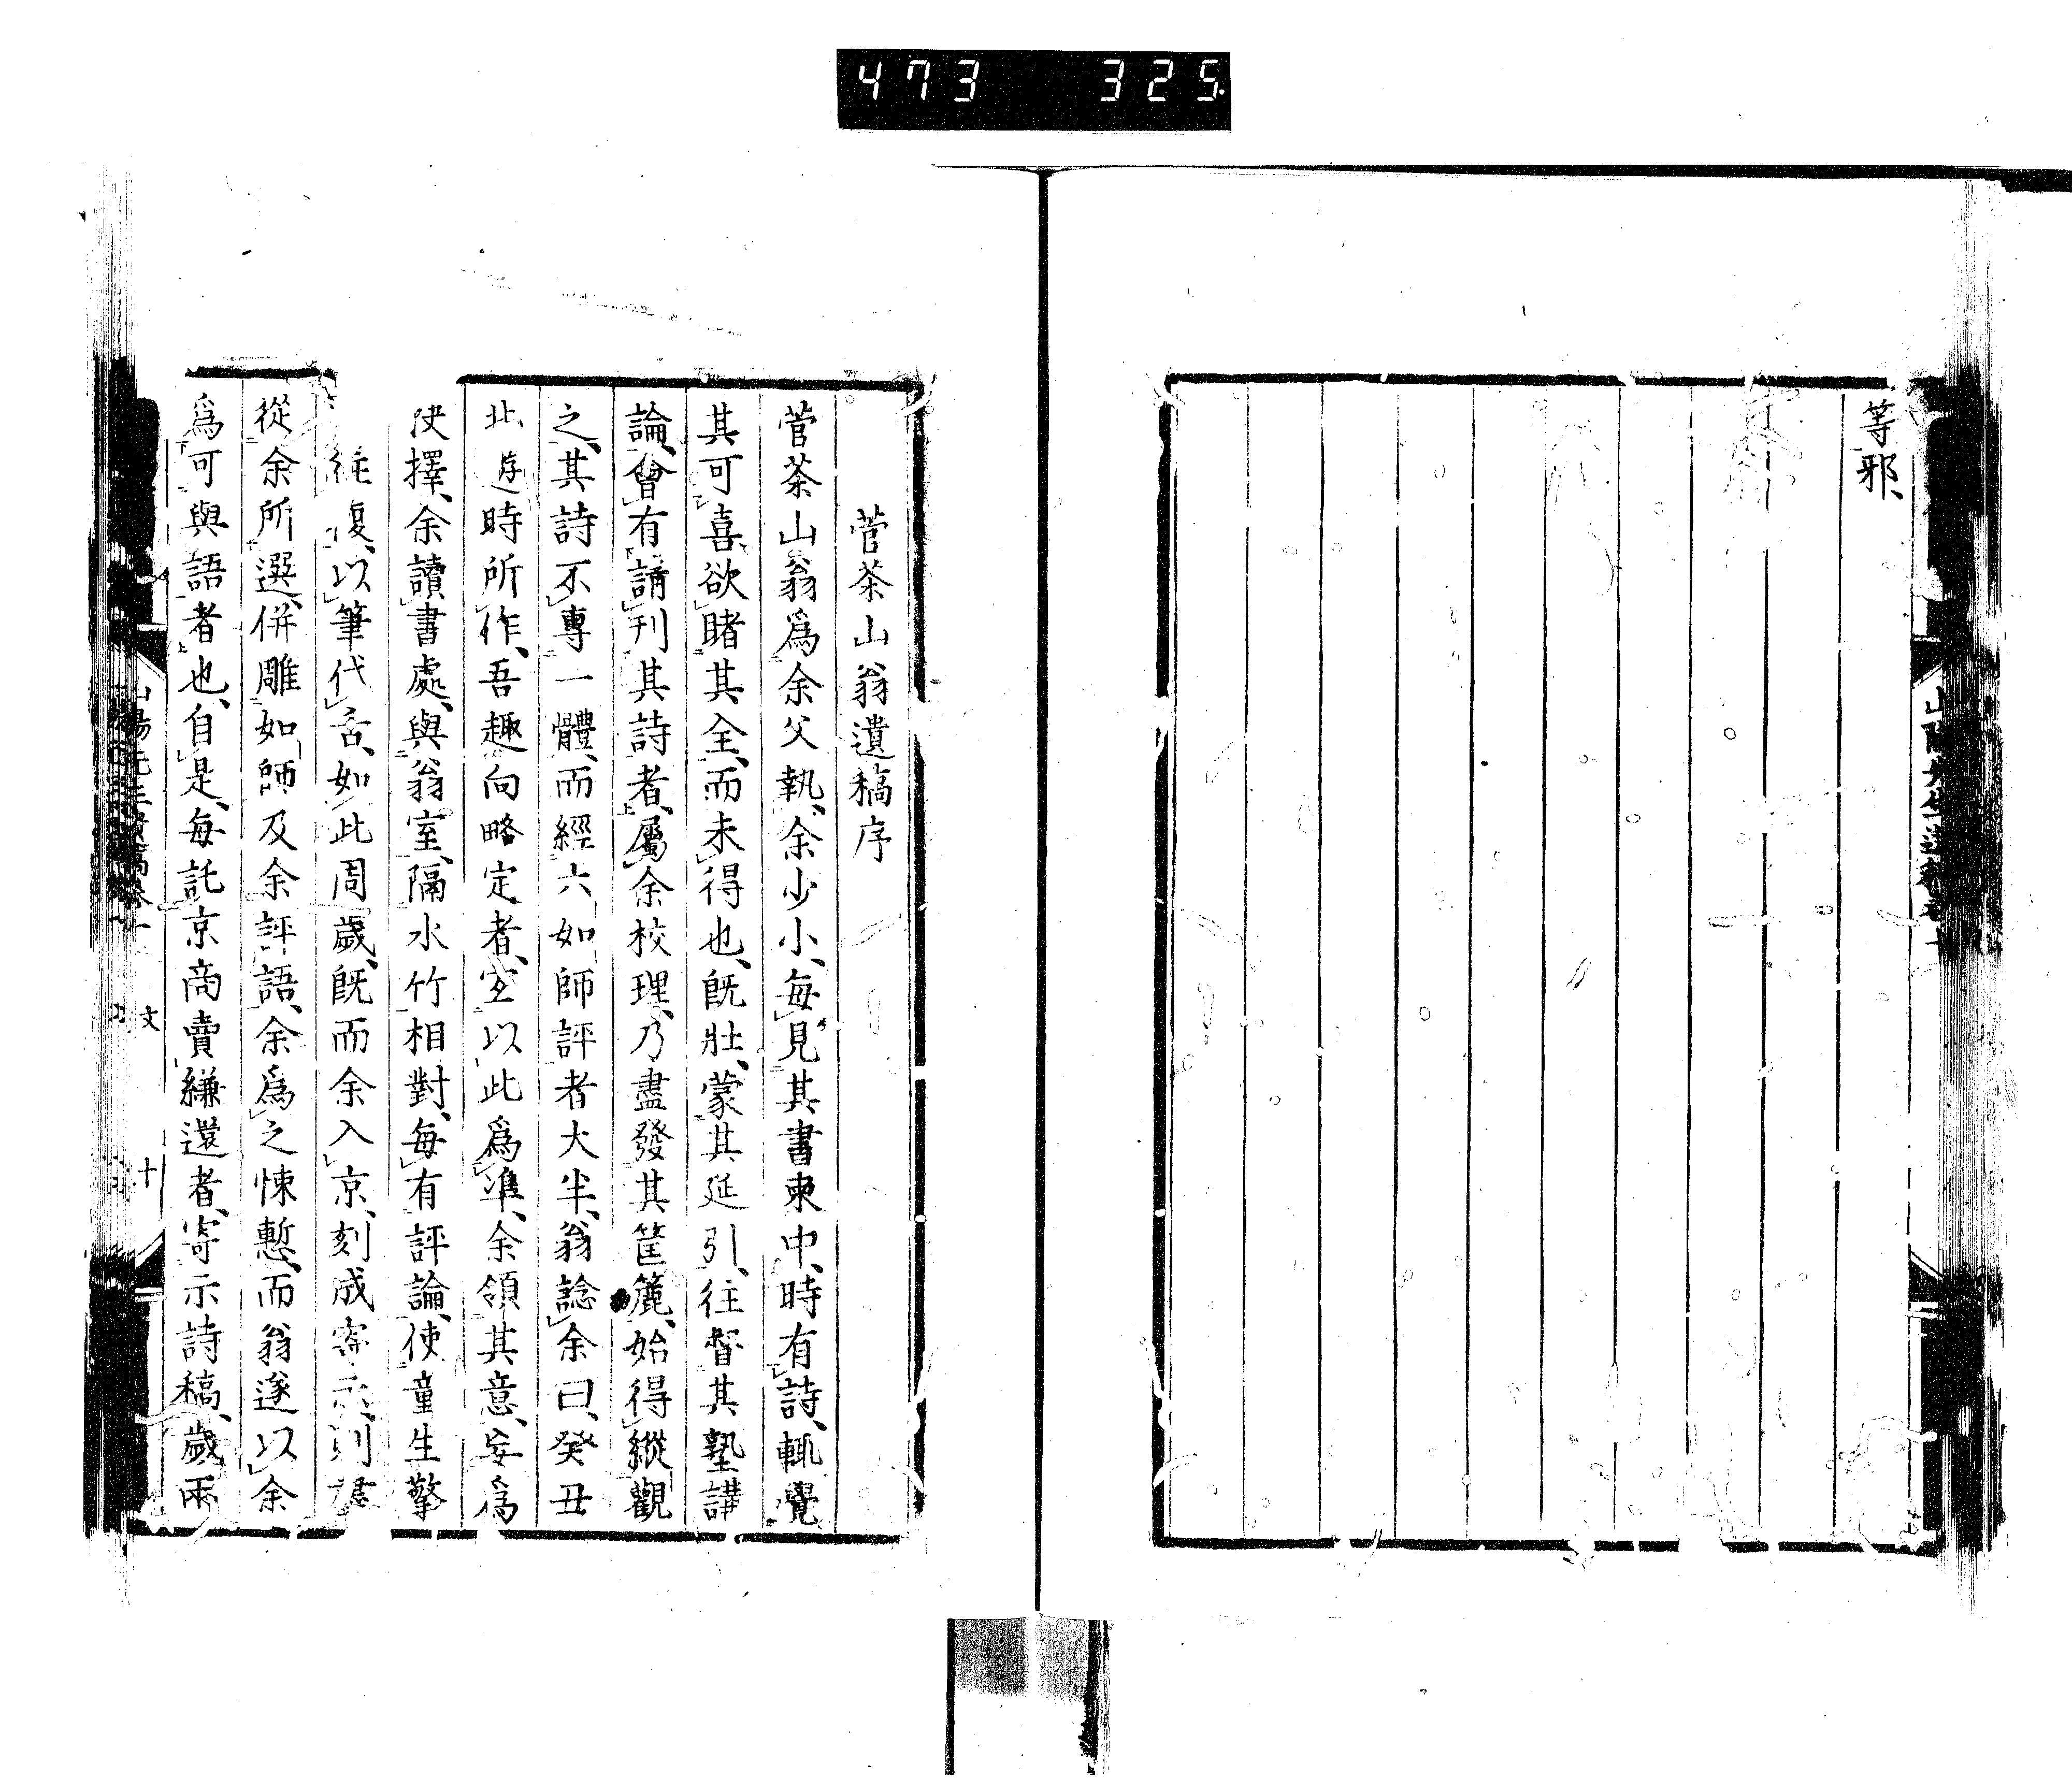 473 325
等邪、
菅茶山翁遺稿序
菅茶山翁爲余父執、余少小、每見其書柬中、時有詩、輒覺
其可喜、欲睹其全、而未得也、既壯、蒙其延引、往督其塾講
論、會有請刊其詩者、屬余校理、乃盡發其筐簏、始得縱觀
之、其詩不專一體、而經六如師評者大半、翁諗余曰、癸丑
北游時所作、吾趣向略定者、宜以此爲準、余領其意、妄爲
決擇、余讀書處、與翁室、隔水竹相對、每有評論、使童生擎
往復、以筆代舌、如此周歲、既而余入京、刻成寄示、則盡
從余所選、併雕如師及余評語、余爲之悚慙、而翁遂以余
爲可與語者也、自是、每託京商賣縑還者、寄示詩稿、歲兩
文
十